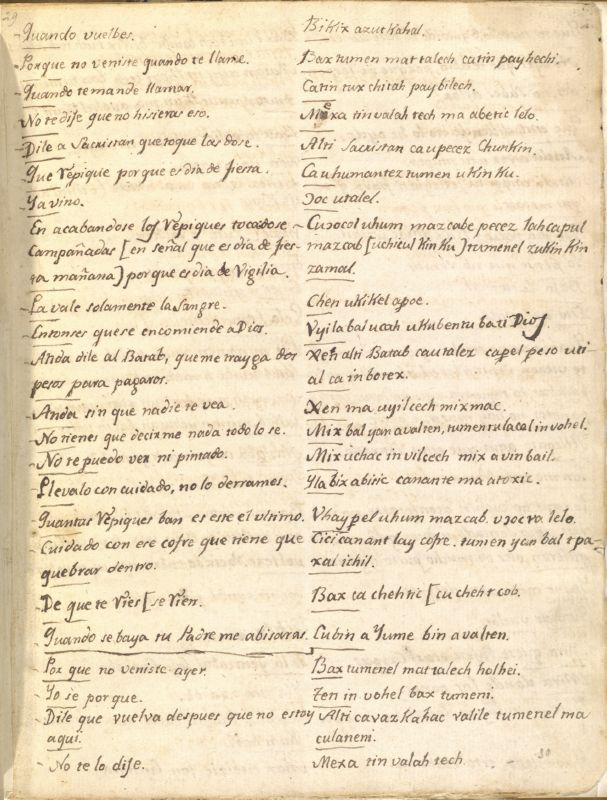 29
Quando vuelbes. Bikix azut kahal.
Porque no veniste quando te llame. Bax tumen mat talech catin payhechi.
Quando te mande llamar. Catin tux chitah paybilech.
No te dise que no hisieras eso. Mexa tin valah tech ma abetic lelo.
Dile a Sacristan que toque las dose. Alti Sacristan ca u pecez Chunkin.
Que repique porque es dia de fiesta. Ca u humantez tumen u kin ku.
Ya vino. Ɔoc utalel.
En acabandose los repiques Cuɔocol uhum mazcab cu pecez lahcapul
Campañadas [en señal que es dia de fies- mazcab [uchicul kin ku) tumenel zukin kin
ta mañana) porque es dia de Vigilia. zamal.
La vale solamente la sangre. Chen u kikel
Entonses que se encomiende a Dios. u kubentuba ti Dios.
Anda dile al Batab, que me trayga dos Xen alti Batab ca utalez capel peso uti-
pesos para pagaros. al ca in botex.
Anda sin que nadie te vea. Xen ma uyilcech mixmac.
No tienes que decirme nada todo lo se. Mix bal yan avalten, tumen tulacal in vohel.
No te puedo ver ni pintado. Mix uchac in vilcech mix a vinbail.
Llevalo con cuidado, no lo derrames. abisic canante ma
Quantas repiques ban es este el ultimo. Vhaypel uhum mazcab. uɔoc va lelo.
Cuidado con ese cofre que tiene que Cici canant lay cofre. tumen yan bal
quebrar dentro. ichil.
De que te ries [se rien. Bax ca chehtic [cu cheht cob.
Quando se baya tu Padre me abisaras. Cu bin a Yume bin avalten.
Por que no veniste ayer. Bax tumenel mat talech holhei.
Yo se por que. Ten in vohel bax tumeni.
Dile que vuelva despues que no estoy Alti ca vaz kahac valile tumenel ma
aqui. culaneni.
No te lo dise. Mexa tin valah tech.